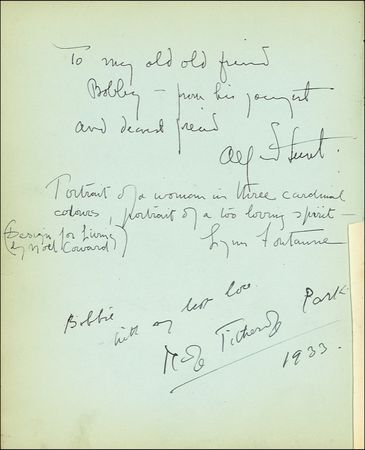 To my old old friend
Bobbey – from his youngest
and dearest friend
Alfred Lunt.
Portrait of a woman in three cardinal
colours, portrait of a too loving spirit –
(Design for Living
by Noel Coward)
Lynn Fontanne
Bobbie
with my best love.
Titheradge
Park
1933.